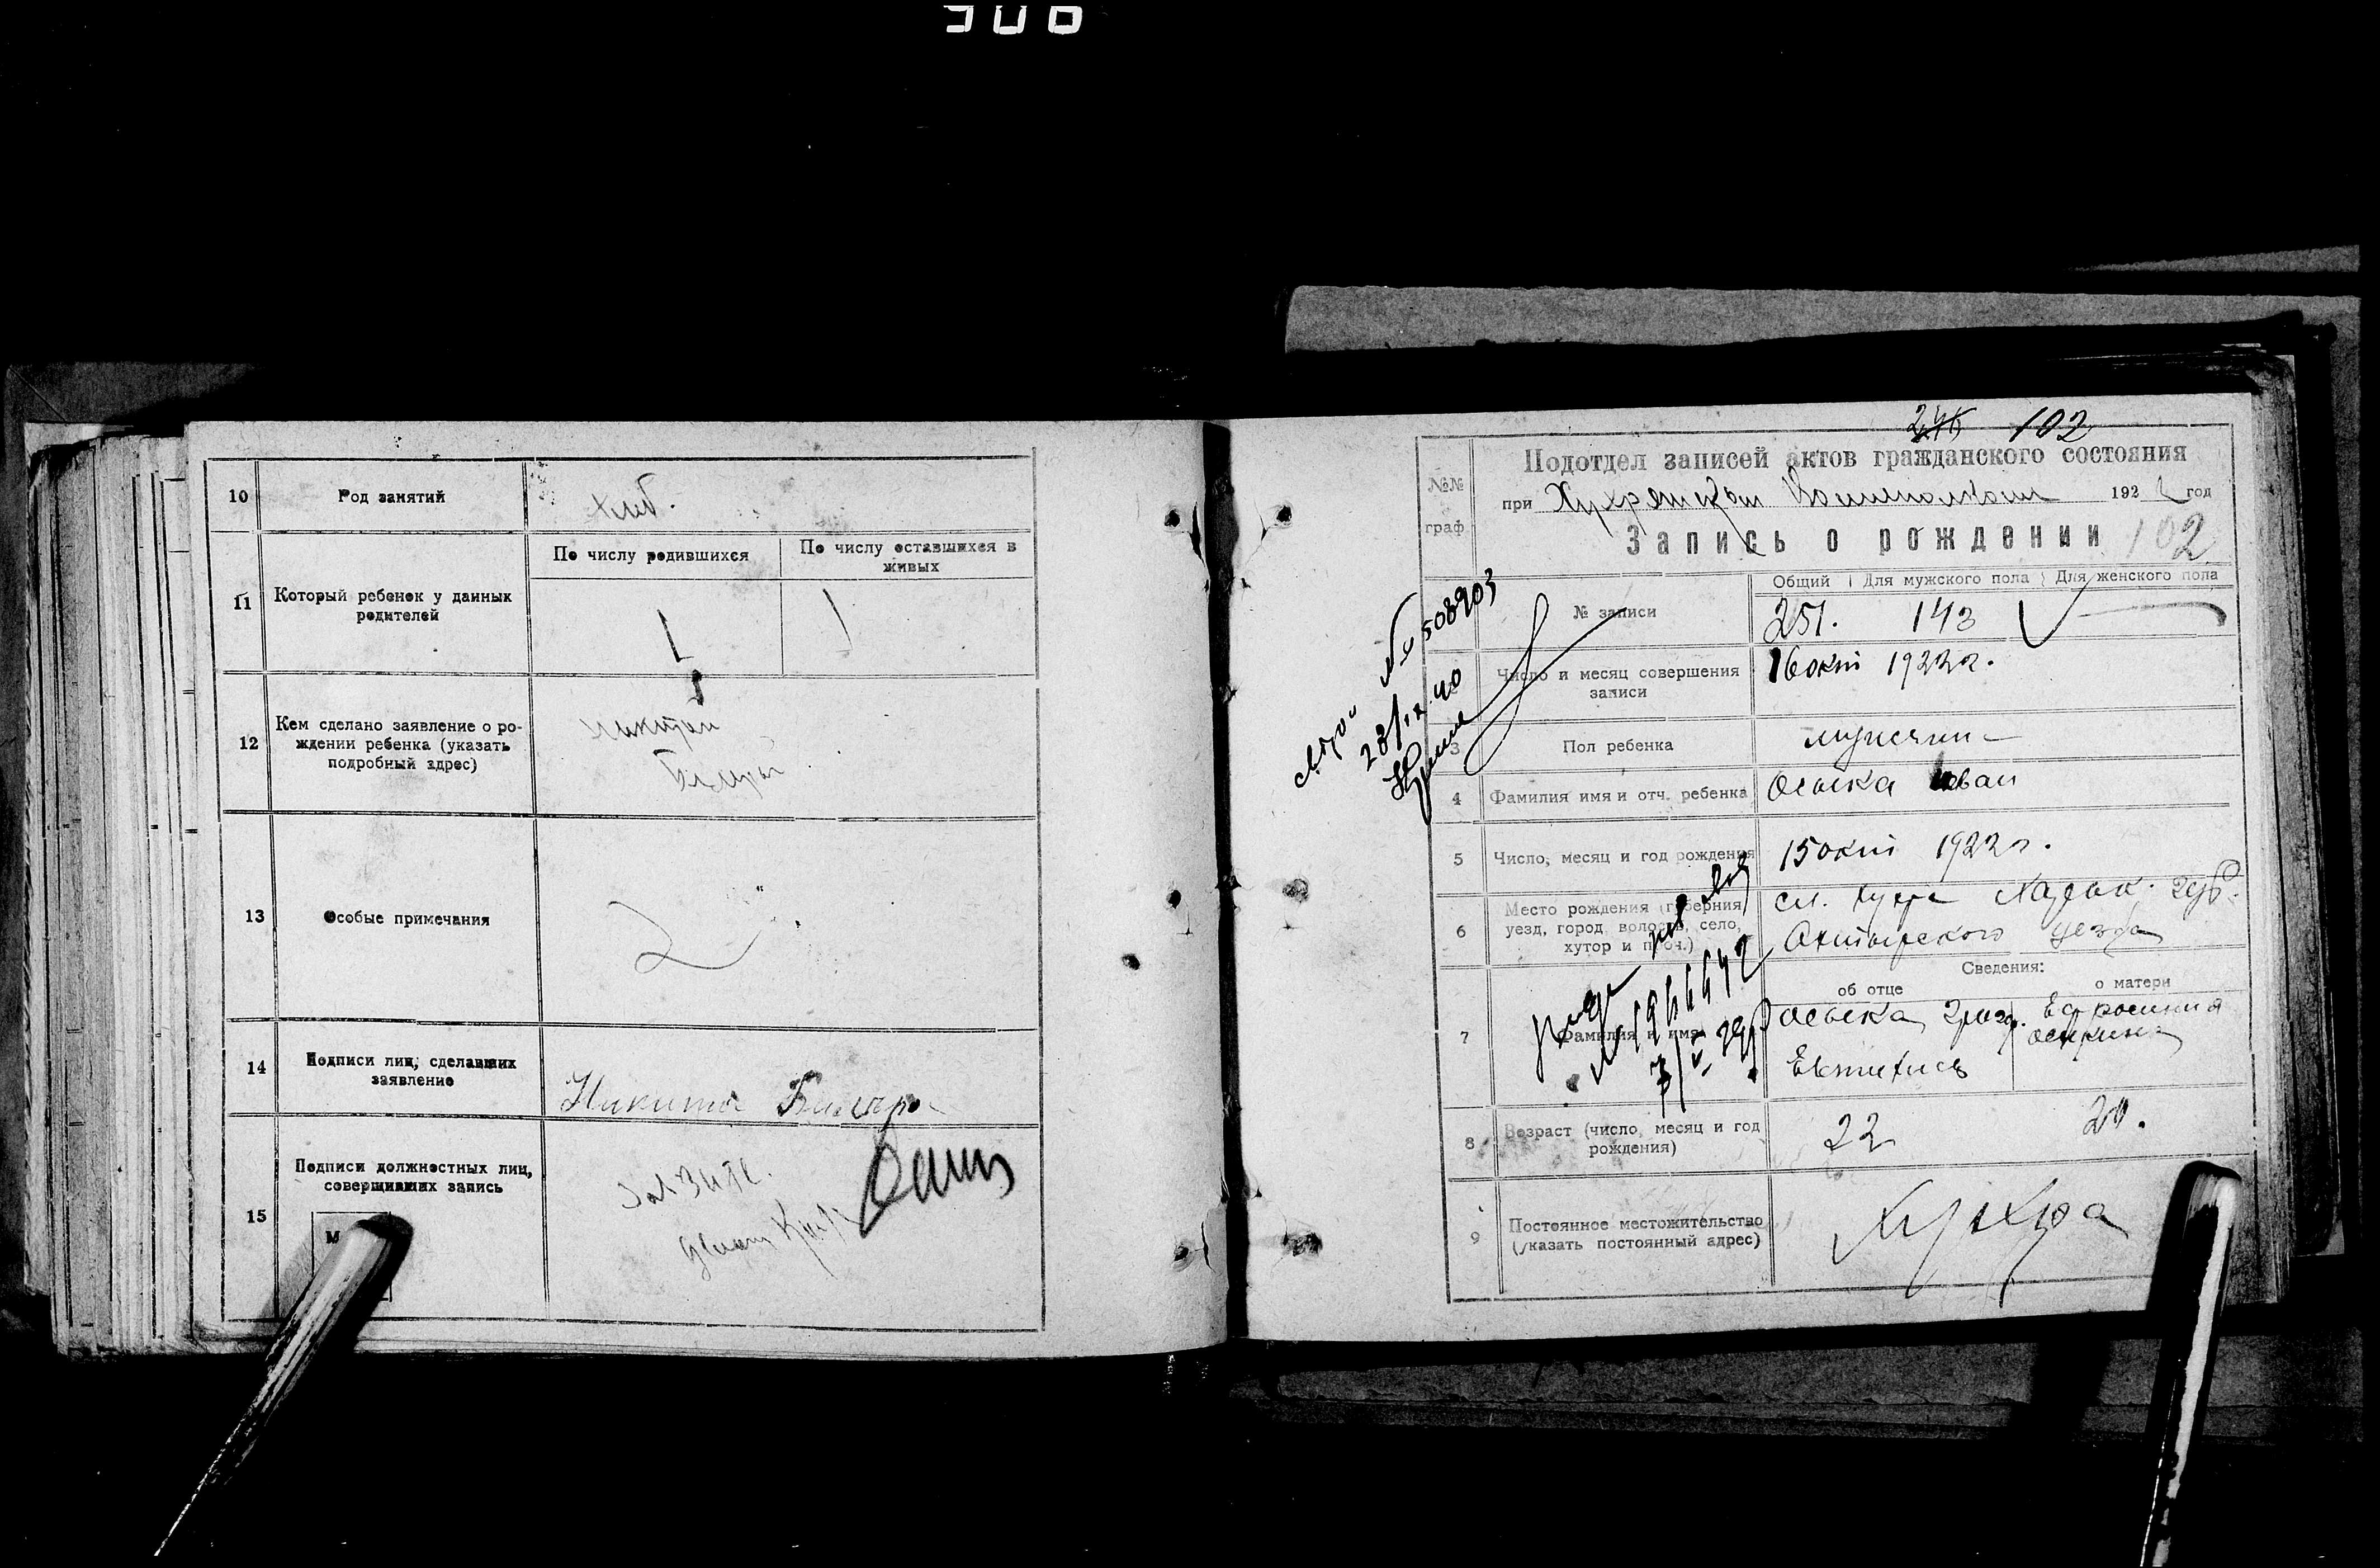 10
Род занятий
хлеб.
11
Который ребенок у данных
родителей
По числу родившихся
По числу оставшихся в
живых
1
1
12
Кем сделано заявление о ро-
ждении ребенка (указать
подробный адрес)
13
Особые примечания
14
Подписи лиц, сделавших
заявление
Никита
15
Подписи должностных лиц,
совершивших запись
246 102
№№
граф
Подотдел записей актов гражданского состояния
при 192 2 год
Запись о рождении 102
№ записи
Общий
Для мужского пола
Для женского пола
251. 143
Число и месяц совершения
записи
16 окт 1922 г.
3
Пол ребенка
мужчин
4
Фамилия имя и отч. ребенка
Оська Иван
5
Число, месяц и год рождения
15 окт 1922 г.
6
Место рождения (губерния,
уезд, город, волость, село,
хутор и проч.)
сл. Хухра Харьк. губ.
Ахтырского уезда
Сведения:
об отце
о матери
7
Фамилия и имя
Оська
Евтихиев
Ефросиния
8
Возраст (число, месяц и год
рождения)
22
20.
9
Постоянное местожительство
(указать постоянный адрес)
Хухра
№ 508903
23/IX 40